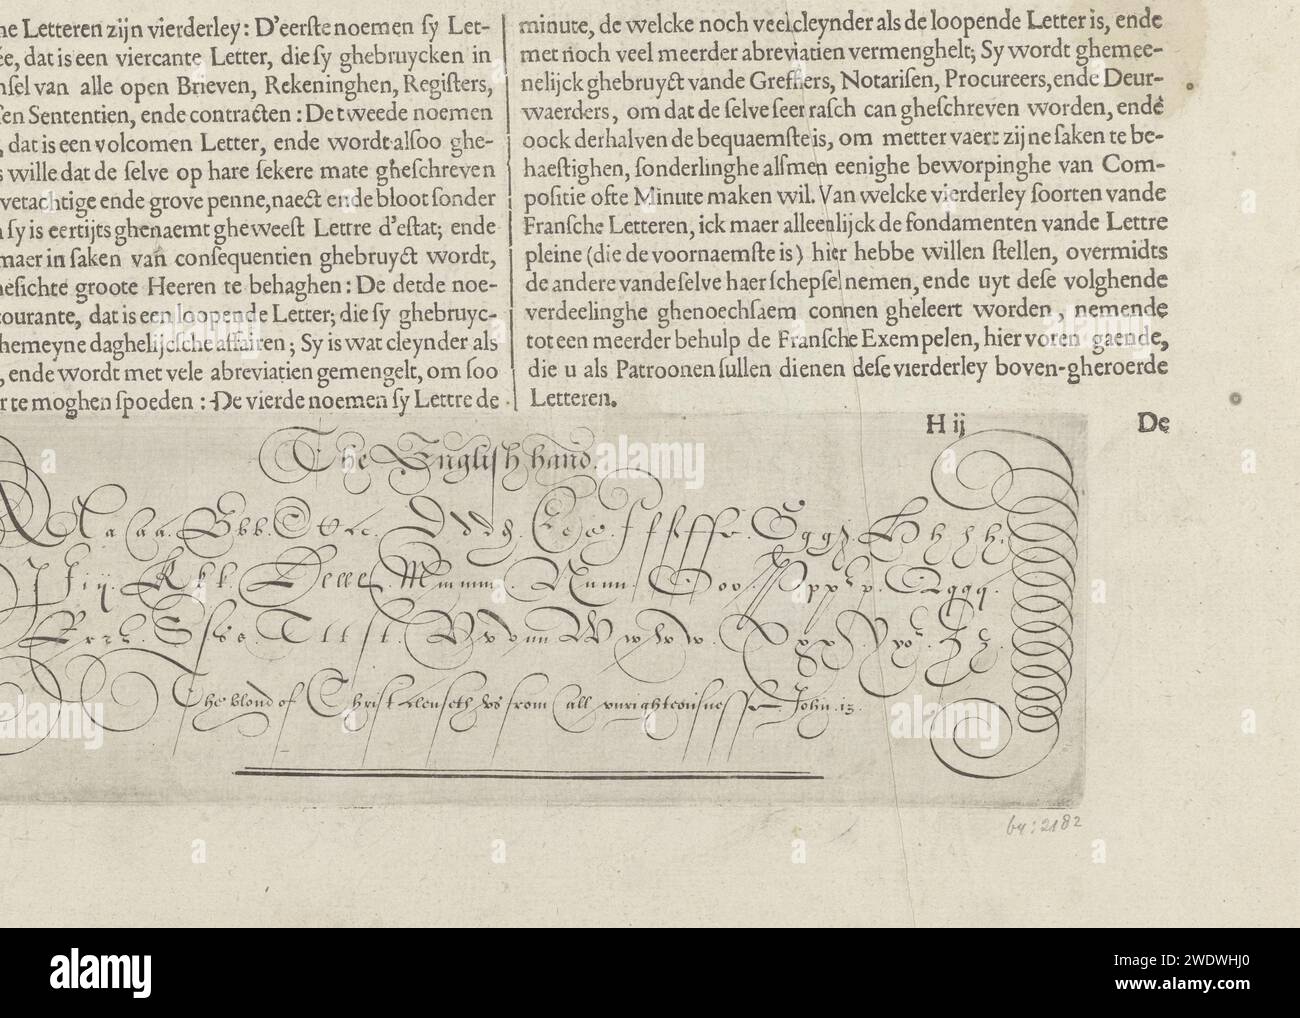 ne Letteren zijn vierderley: D'eerste noemen sy Let-
ée, dat is een viercante Letter, die sy ghebruycken in
nsel van alle open Brieven, Rekeninghen, Registers,
sen Sententien, ende contracten: De tweede noemen
, dat is een volcomen Letter, ende wordt alsoo ghe-
s wille dat de selve op hare sekere mate gheschreven
vetachtige ende grove penne, naect ende bloot sonder
n sy is eertijts ghenaemt gheweest Lettre d'estat; ende
maer in saken van consequentien ghebruyct wordt,
nesichte groote Heeren te behaghen: De derde noe-
courante, dat is een loopende Letter; die sy ghebruyc-
hemeyne daghelijcsche affairen; Sy is wat cleynder als
, ende wordt met vele abreviatien gemengelt, om soo
er te moghen spoeden: De vierde noemen sy Lettre de
minute, de welcke noch veel cleynder als de loopende Letter is, ende
met noch veel meerder abreviatien vermenghelt; Sy wordt ghemee-
nelijck ghebruyct vande Greffiers, Notarisen, Procureers, ende Deur-
waerders, om dat de selve seer rasch can gheschreven worden, ende
oock derhalven de bequaemste is, om metter vaert zijne saken te be-
haestighen, sonderlinghe alsmen eenighe beworpinghe van Com-
positie ofte Minute maken wil. Van welcke vierderley soorten vande
Fransche Letteren, ick maer alleenlijck de fondamenten vande Lettre
pleine (die de voornaemste is) hier hebbe willen stellen, overmidts
de andere vande selve haer schepsel nemen, ende uyt dese volghende
verdeelinghe ghenoechsaem connen gheleert worden, nemende
tot een meerder behulp de Fransche Exempelen, hier voren gaende,
die u als Patroonen sullen dienen dese vierderley boven-gheroerde
Letteren.
H ij De
The English hand.
The bloud of Christ clenseth vs from all vnrighteousnesse. John. 13.
by: 2182
alamy
Image ID: 2WDWHJ0
www.alamy.com